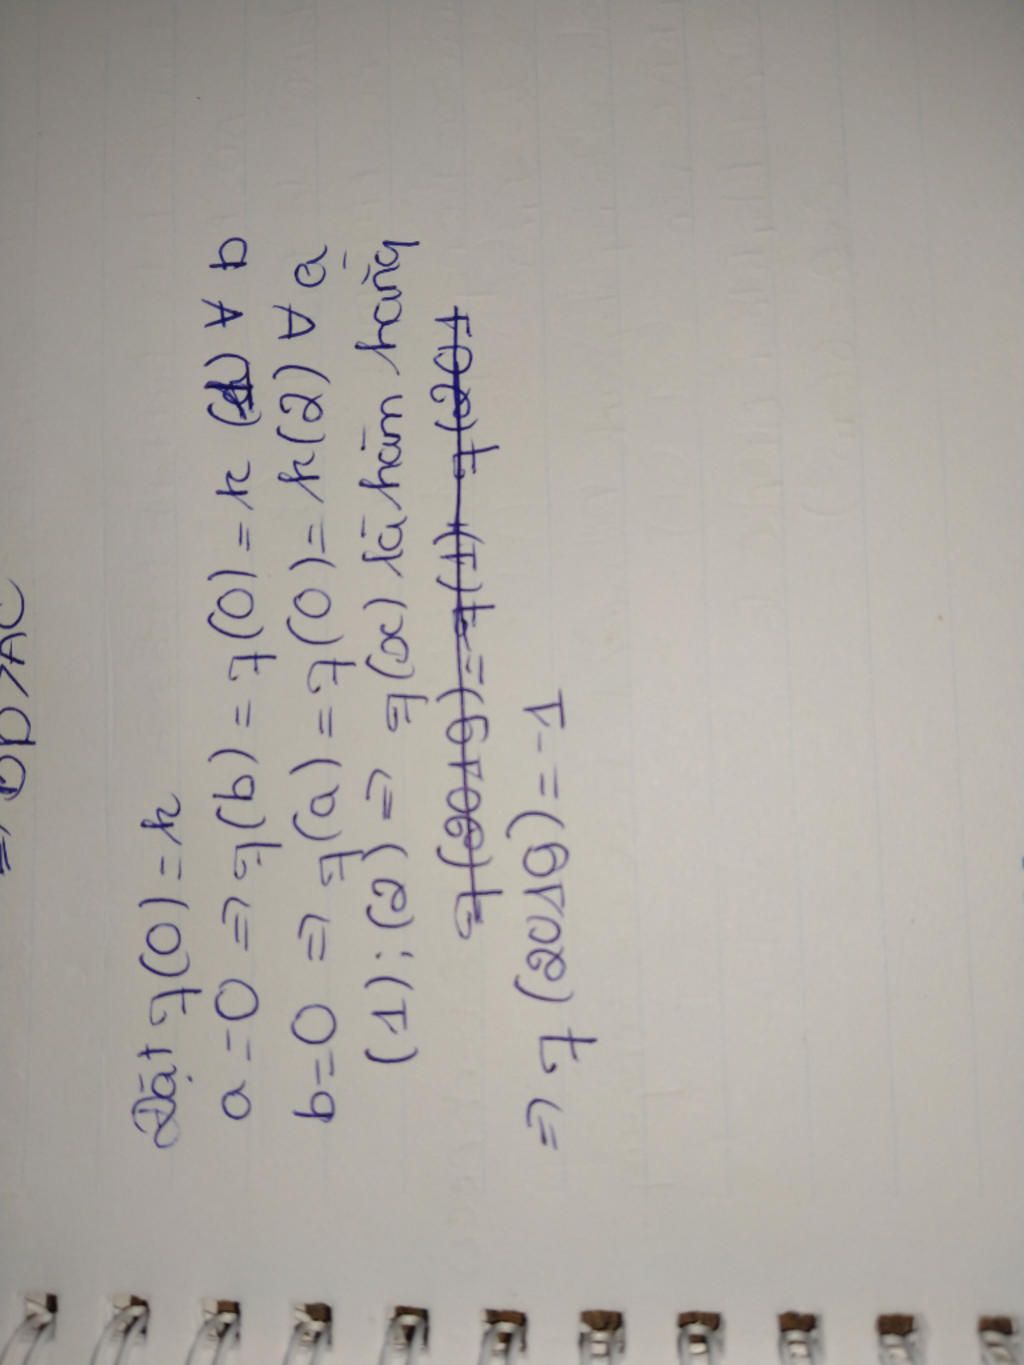 ⇒ OD > AC
Đặt f(0) = k
a = 0 ⇒ f(b) = f(0) = k (1) ∀ b
b = 0 ⇒ f(a) = f(0) = k (2) ∀ a
(1); (2) ⇒ f(x) là hàm hằng
f(2019) = f(1) f(201
⇒ f(2019) = -1